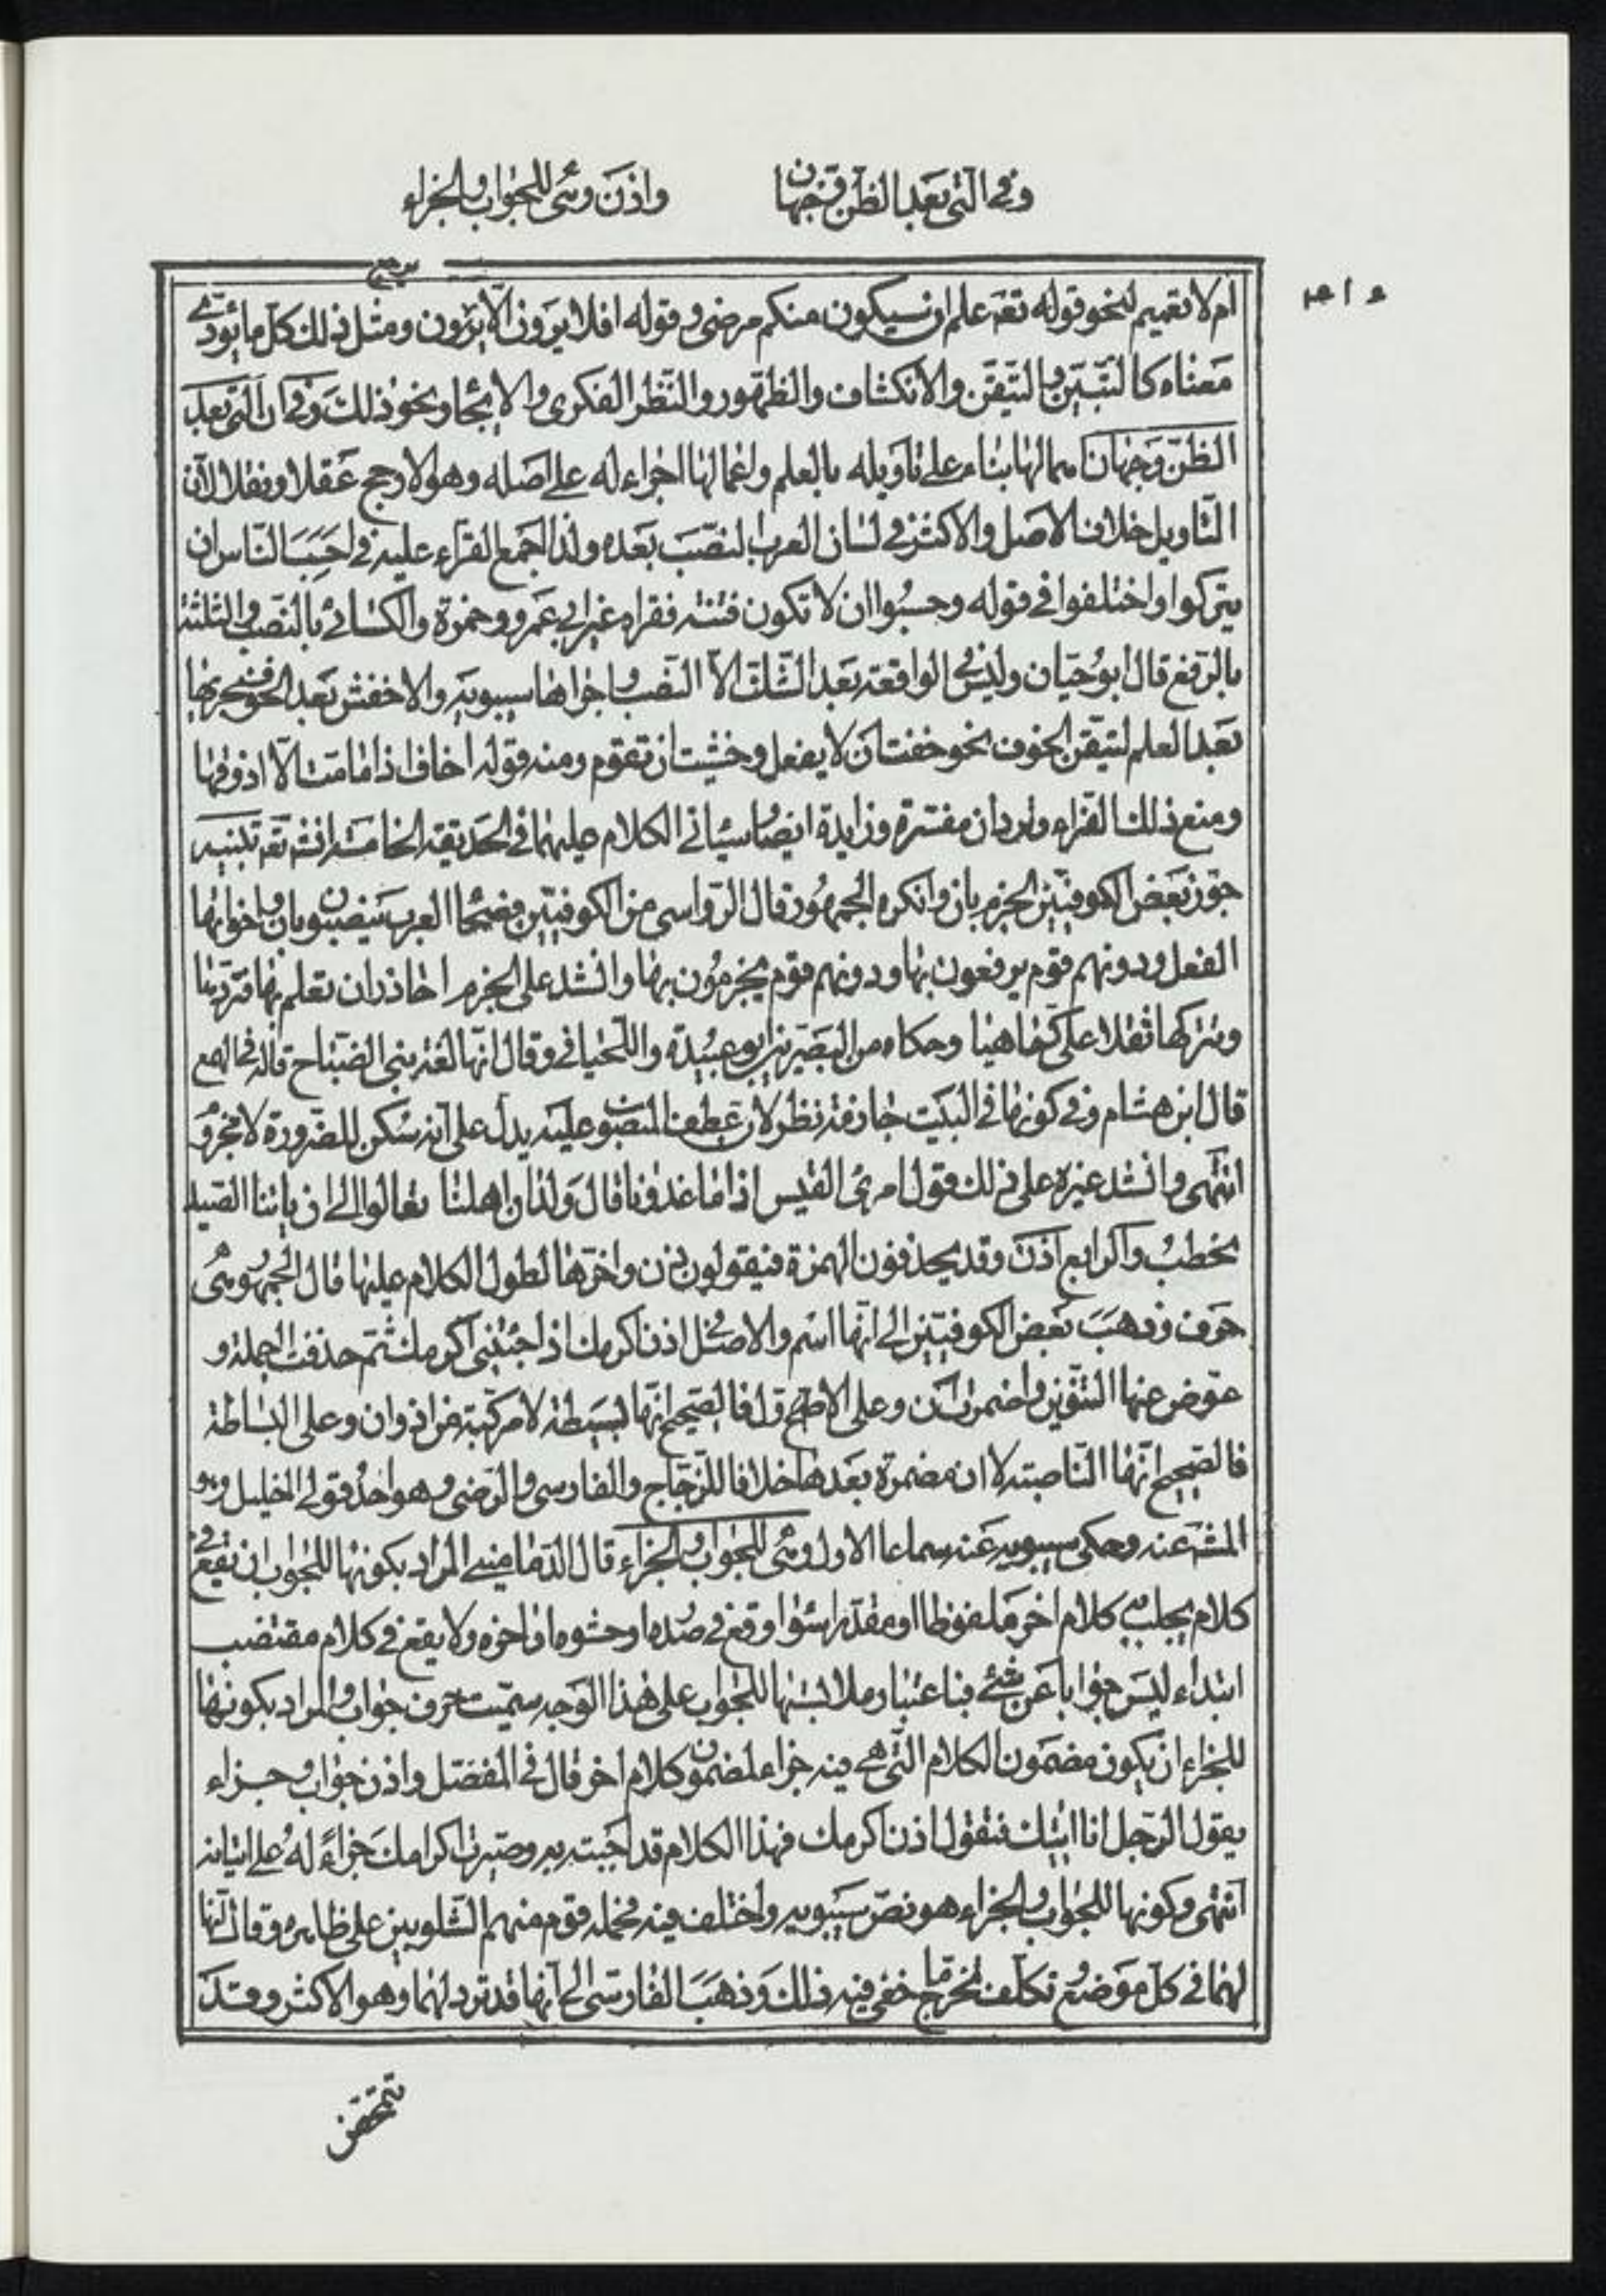 وفي التي بعد الظن وجهان
واذن وهي للجواب والجزاء
ام لا تعميم لنحو قوله تعه علم ان سيكون منكم مرضى وقوله افلا يرون الا يرون ومثل ذلك كل ما يؤدى
معناه كالتبين والتيقن والانكشاف والظهور والنظر الفكرى والايحاء ونحو ذلك وفى ان التى بعد
الظن وجهان اهمالها بناء على تاويله بالعلم واعمالها اجراء له على اصله وهو الارجح عقلا ونقلا لان
التاويل خلاف الاصل والاكثر فى لسان العرب النصب بعده ولذا اجمع القراء عليه فى احسب الناس ان
يتركوا واختلفوا فى قوله وحسبوا ان لا تكون فتنة فقراه غير ابى عمرو وحمزة والكسائى بالنصب والثلثة
بالرفع قال ابو حيان وليس فى الواقعة بعد الشك الا النصب واجراها سيبويه والاخفش بعد الخوف مجريها
بعد العلم لتيقن الخوف نحو خفت ان لا يفعل وخشيت ان تقوم ومنه قوله اخاف اذا ما مت الا اذوقها
ومنع ذلك الفراء وترد ان مفسرة وزايدة ايضا وسياتى الكلام عليهما فى الحديقة الخامسة انشه تعه تنبيه
جوز بعض الكوفيين الجزم بان وانكره الجمهور قال الرواسى من الكوفيين فصحاء العرب ينصبون بان واخواتها
الفعل ودونهم قوم يرفعون بها ودونهم قوم يجزمون بها وانشد على الجزم احاذر ان تعلم بها فتردها
وتتركها ثقلا على كما هيا وحكاه من البصريين ابو عبيدة واللحيانى وقال انها لغة بنى الصباح قاله فى الهمع
قال ابن هشام وفى كونها فى البيت جازمة نظر لان عطف المنصوب عليه يدل على انه سكن للضرورة لا مجزوم
انتهى وانشد غيره على ذلك قول امرئ القيس اذا ما غدونا قال ولدان اهلنا تعالوا الى ان ياتنا الصيد
نحطب والرابع اذن وقد يحذفون الهمزة فيقولون ذن واخرها لطول الكلام عليها قال الجمهور هى
حرف وذهب بعض الكوفيين الى انها اسم والاصل فى اذن اكرمك اذا جئتنى اكرمك ثم حذفت الجملة و
عوض عنها التنوين واضمرت ان وعلى الاول فالصحيح انها بسيطة لا مركبة من اذ وان وعلى البساطة
فالصحيح انها الناصبة لا ان مضمرة بعدها خلافا للزجاج والفارسى والرضى وهو احد قولى الخليل وهو
المشه عنه وحكى سيبويه عنه سماعا الاول وهى للجواب والجزاء قال الدمامينى المراد بكونها للجواب ان تقع فى
كلام يجاب به كلام اخر ملفوظا او مقدرا سواء وقع فى صدره او حشوه او اخره ولا يقع فى كلام مقتضب
ابتداء ليس جوابا عن شئ فباعتبار ملابستها للجواب على هذا الوجه سميت حرف جواب والمراد بكونها
للجزاء ان يكون مضمون الكلام التى هى فيه جزاء لمضمون كلام اخر قال فى المفصل واذن جواب وجزاء
يقول الرجل انا اتيك فتقول اذن اكرمك فهذا الكلام قد اجبته به وصيرت اكرامك جزاءً له على اتيانه
انتهى وكونها للجواب والجزاء هو نص سيبويه واختلف فيه فحمله قوم منهم الشلوبين على ظاهره وقال انها
لهما فى كل موضع وتكلف تخرج ما خفى فيه ذلك وذهب الفارسى الى انها قد ترد لهما وهو الاكثر وقد
تتمحض